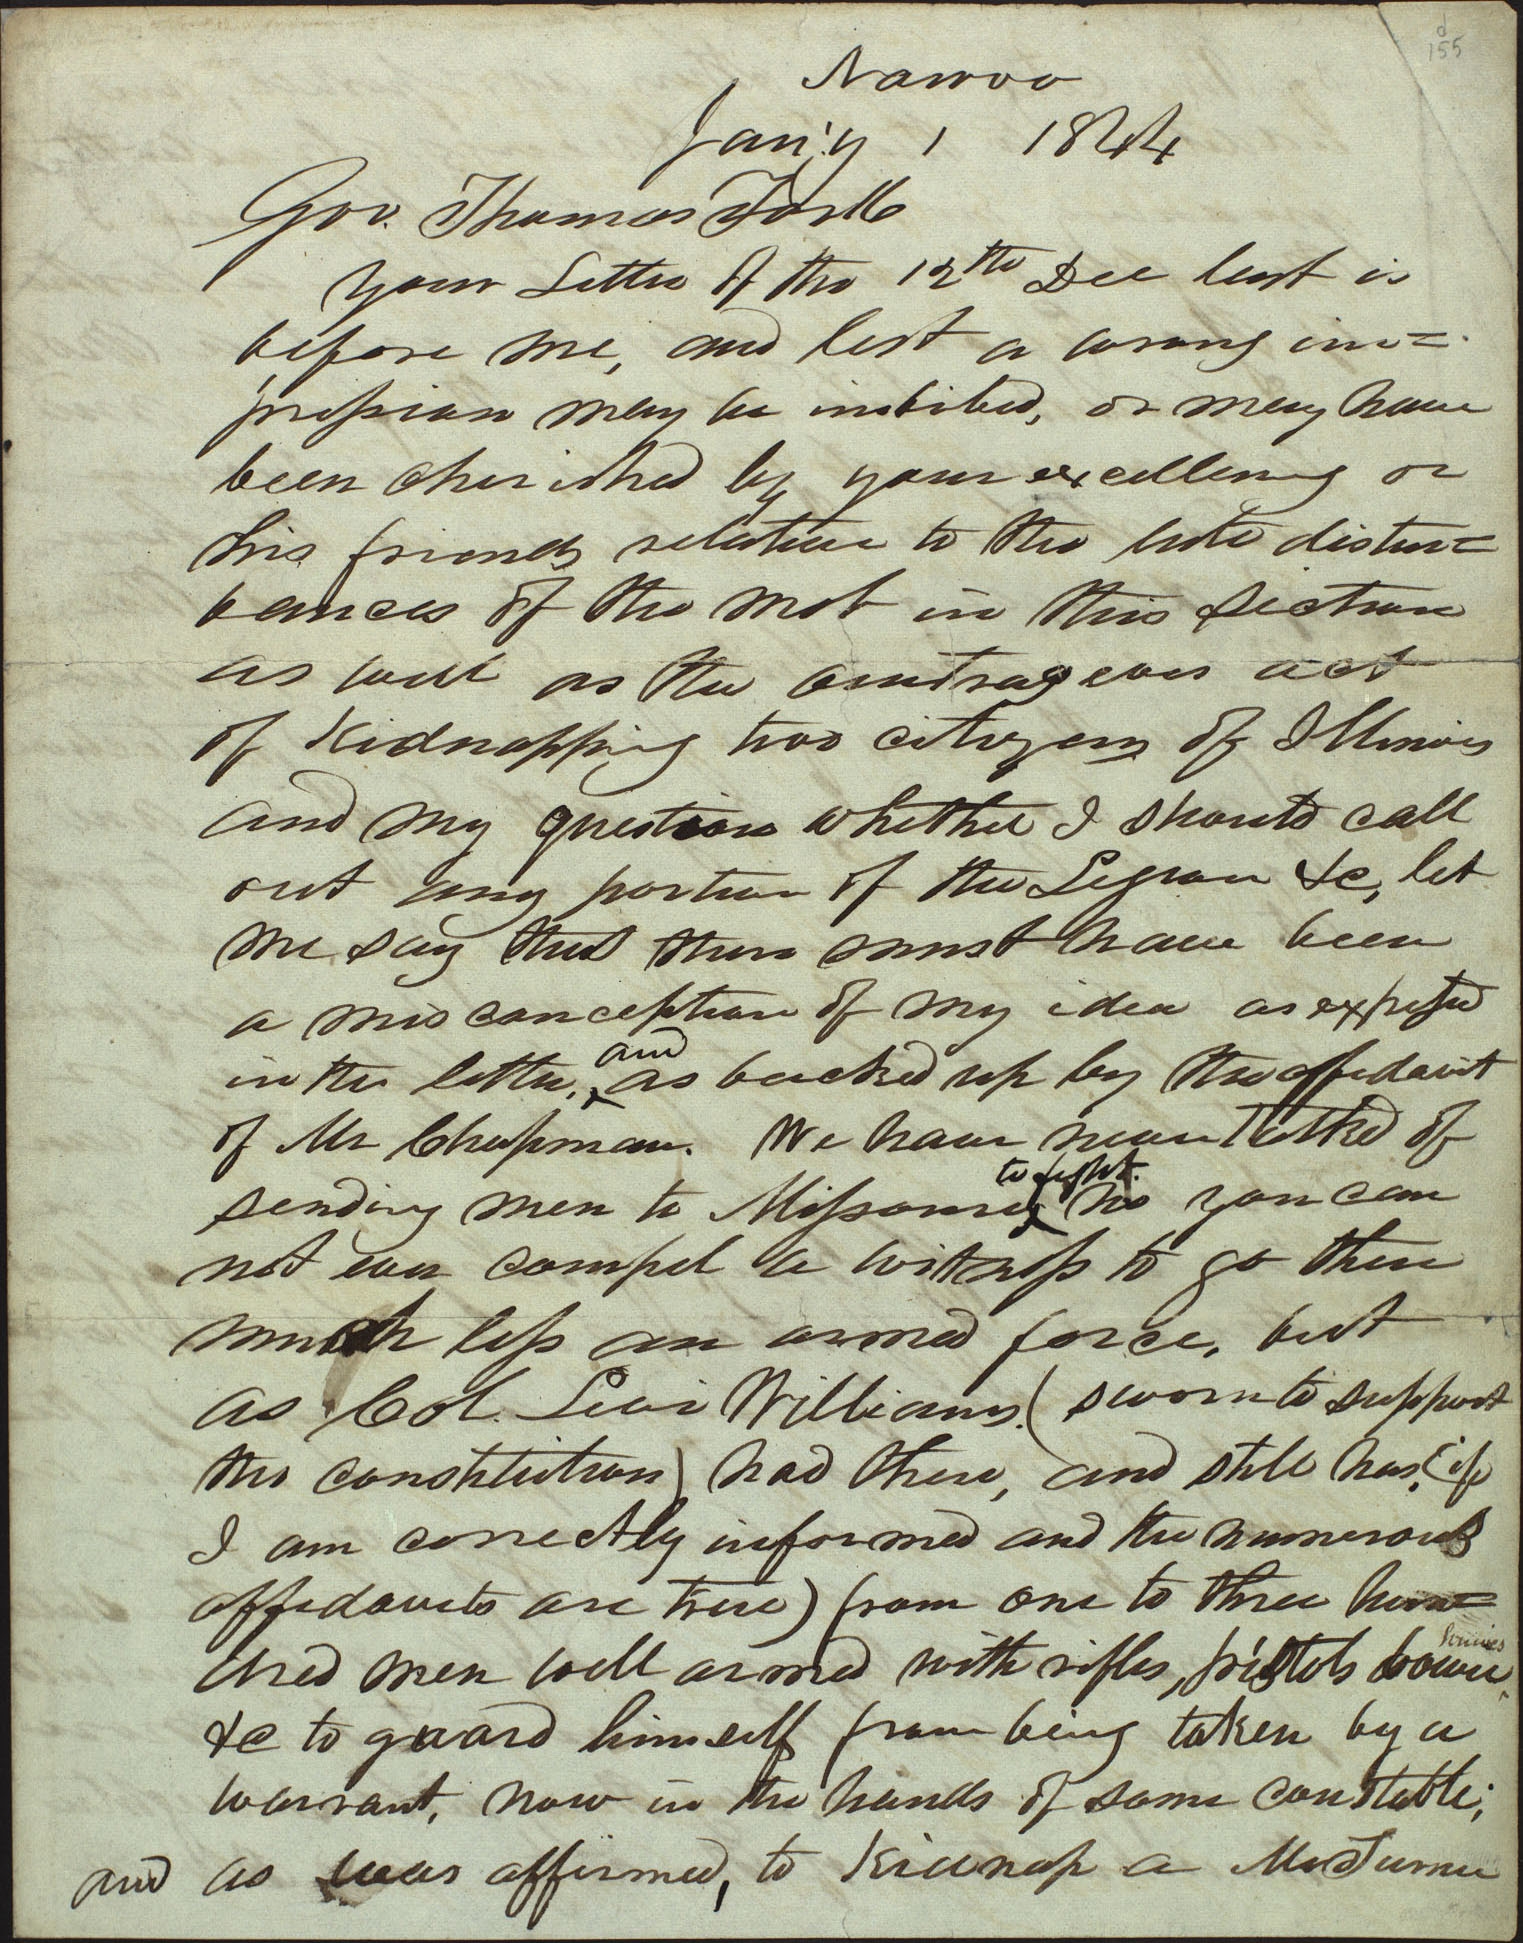 d
155
Nauvoo
Jan'y 1 1844
Gov. Thomas Ford
your Letter of the 12th Dec last is
before me, and lest a wrong im=
pression may be imbibed, or may have
been cherished by your excellency or
his friends relative to the late distur=
bances of the mob in this section
as well as the outrageous act
of Kidnapping two citizens of Illinois
and my question whether I should call
out any portion of the Legion &c, let
me say that there must have been
a misconception of my idea as expressed
in the letter, and as backed up by the affidavit
of Mr Chapman. We have never talked of
sending men to Missouri to fight. no you can
not even compel a witness to go there
much less an armed force, but
as Col. Levi Williams (sworn to support
the constitution) had there, and still has, (if
I am correctly informed and the numerous
affidavits are true) from one to three hun=
dred men well armed with rifles, pistols bowie
&c to guard himself from being taken by a
warrant, now in the hands of some constable;
and as was affirmed, to Kidnap a Mr Turner